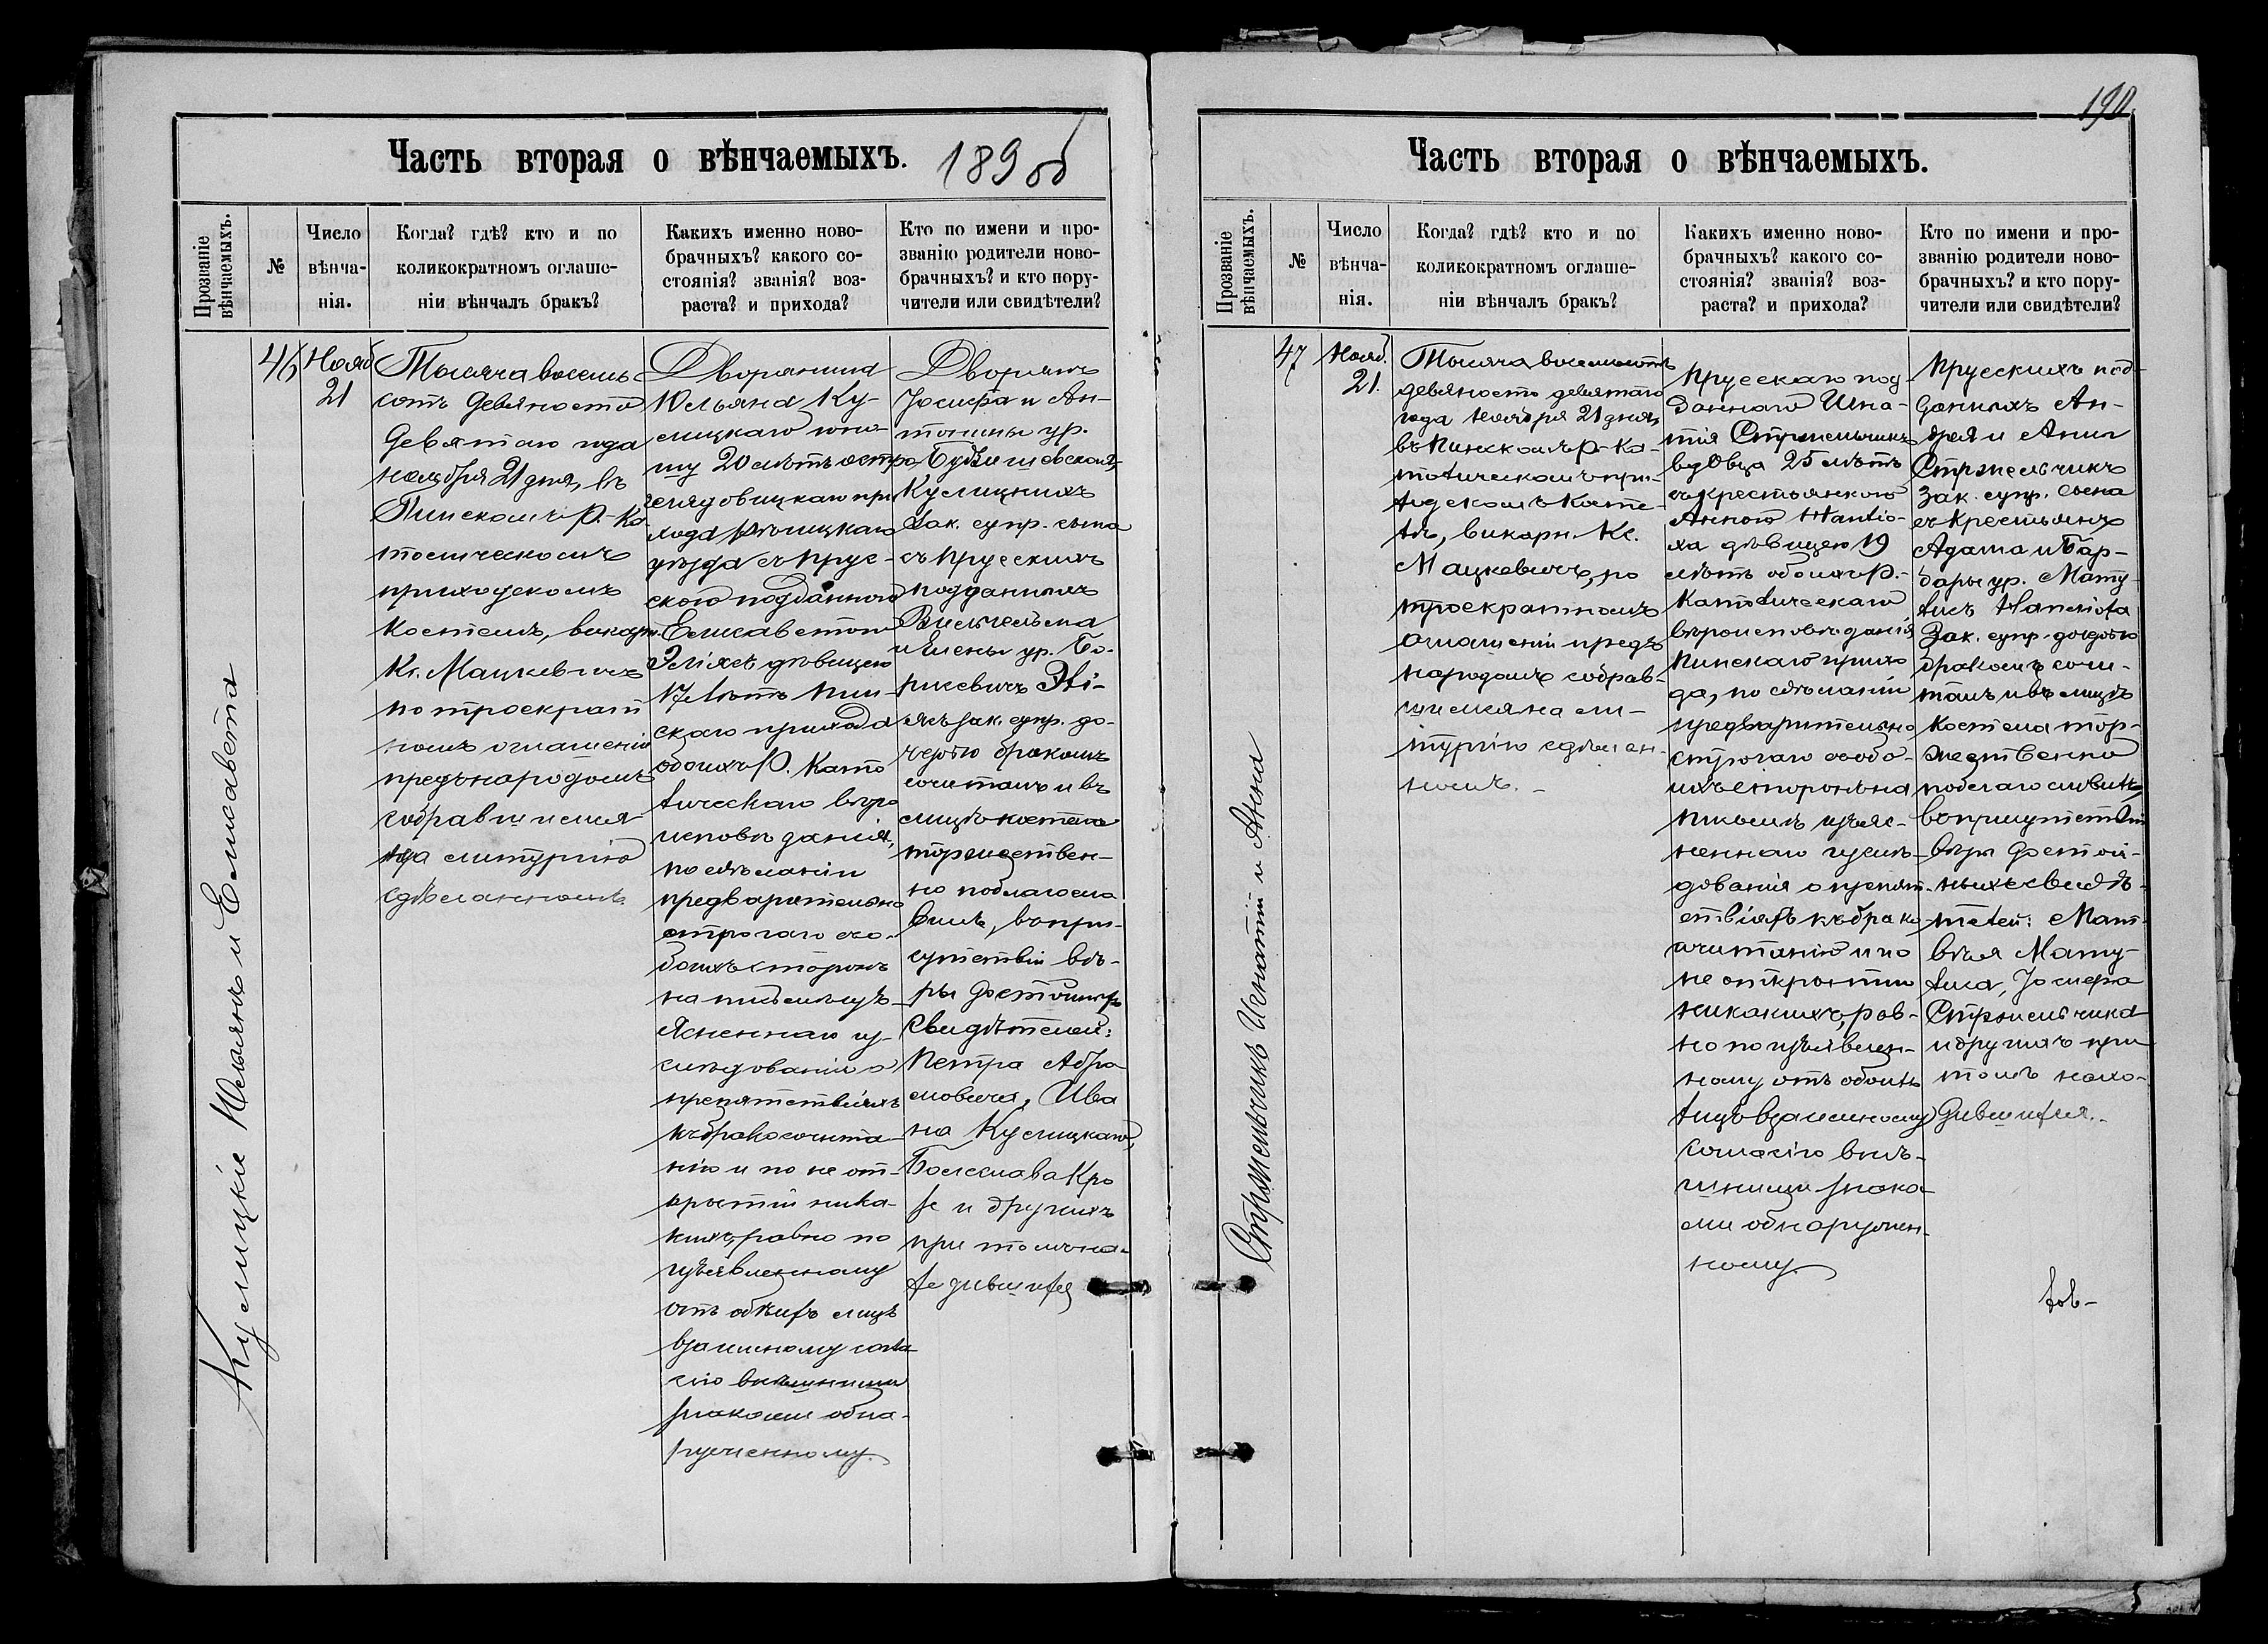 190
Часть вторая о вѣнчаемыхъ. 189
Прозваніе
вѣнчаемыхъ.
№
Число
вѣнча-
нія.
Когда? гдѣ? кто и по
коликократномъ оглаше-
ніи вѣнчалъ бракъ?
Какихъ именно ново-
брачныхъ? какого со-
стоянія? званія? воз-
раста? и прихода?
Кто по имени и про-
званію родители ново-
брачныхъ? и кто пору-
чители или свидѣтели?
Куслицкіе Юльянъ и Елисавета
46
Нояб
21
Тысяча восемь
сотъ девяносто
девятаго года
ноября 21 дня, въ
Пинскомъ Р.-Ка
толическомъ
приходскомъ
костелѣ, викарн.
Кс. Мацкевичъ
по троекрат
номъ оглашеніи
предъ народомъ
собравшимся
на литургію
сдѣланномъ.
Дворянина
Юльяна Ку-
слицкаго юно-
шу 20 лѣтъ остро
глядовицкаго при
хода
уѣзда съ прус-
скою подданною
Елисаветою
дѣвицею
17 лѣтъ Пин-
скаго прихода
обоихъ Р. Като
лическаго вѣро
исповѣданія,
по сдѣланіи
предварительно
строгаго съ о-
боихъ сторонъ
на письмѣ изъ-
ясненнаго из-
слѣдованія о
препятствіяхъ
къ бракосочета-
нію и по не от-
крытіи ника-
кихъ, равно по
изъявленному
отъ обѣихъ лицъ
взаимному согла
сію внѣшними
знаками обна-
руженному.
Дворянъ
Іосифа и Ан-
тонины ур.
Куслицкихъ
зак. супр. сына
съ прусскихъ
подданныхъ
Вильгельма
и Елены ур. Бо-
рисевичъ
зак. супр. до-
черью бракомъ
сочеталъ и въ
лицѣ костела
торжествен-
но поблагосло
вилъ, въ при-
сутствіи вѣ-
ры достойныхъ
свидѣтелей:
Петра Абра
мовича, Ива
на Куслицкаго,
Болеслава Кро
ля и другихъ
при томъ на-
ходившихся
Часть вторая о вѣнчаемыхъ.
Прозваніе
вѣнчаемыхъ.
№
Число
вѣнча-
нія.
Когда? гдѣ? кто и по
коликократномъ оглаше-
ніи вѣнчалъ бракъ?
Какихъ именно ново-
брачныхъ? какого со-
стоянія? званія? воз-
раста? и прихода?
Кто по имени и про-
званію родители ново-
брачныхъ? и кто пору-
чители или свидѣтели?
Стржельчикъ Игнатій и Анна
47
Нояб.
21.
Тысяча восемьсотъ
девяносто девятаго
года ноября 21 дня,
въ Пинскомъ Р-Ка-
толическомъ при-
ходскомъ косте-
лѣ, викарн. Кс.
Мацкевичъ, по
троекратномъ
оглашеніи предъ
народомъ собрав-
шимся на ли-
тургію сдѣлан-
номъ. -
Прусскаго под-
даннаго Игна-
тія Стржельчика
вдовца 25 лѣтъ
съ крестьянкою
Анною
дѣвицею 19
лѣтъ обоихъ Р.-
Католическаго
вѣроисповѣданія
Пинскаго прихо
да, по сдѣланіи
предварительно
строгаго съ обо-
ихъ сторонъ на
письмѣ изъяс-
неннаго изслѣ-
дованія о препят-
ствіяхъ къ брако
сочетанію и по
не открытіи
никакихъ, рав-
но по изъявлен-
ному отъ обоихъ
лицъ взаимному
согласію внѣ-
шними знака-
ми обнаружен-
ному.
Прусскихъ под-
данныхъ Ан-
дрея и Анны
Стржельчикъ
зак. супр. сына
съ крестьянъ
Адама и Вар-
вары ур. Мату-
зак. супр. дочерью
бракомъ соче-
талъ и въ лицѣ
костела тор-
жественно
поблагословилъ,
въ присутствіи
вѣры достой-
ныхъ свидѣ-
телей: Мат-
вѣя Мату-
лиса, Іосифа
Стржельчика
и другихъ при
томъ нахо-
дившихся.